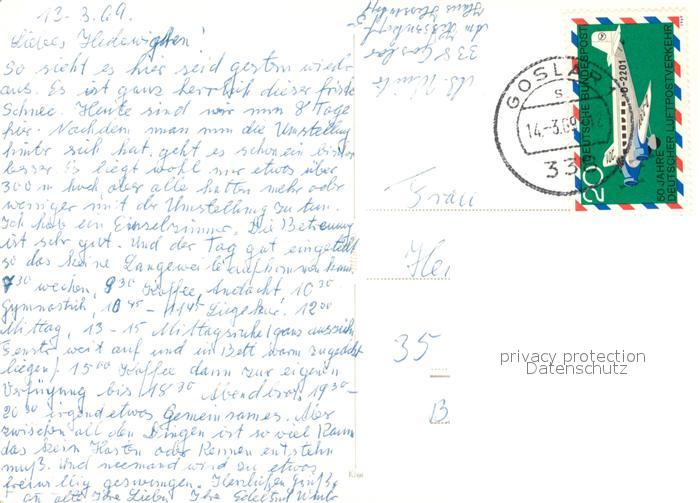 13.3.69.
Liebes Hedewigchen!
So sieht es hier seid gestern wieder
aus. Es ist ganz herrlich dieser frische
Schnee. Heute sind wir nun 8 Tage
hier. Nachdem man nun die Umstellung
hinter sich hat, geht es schon ein bischen
besser. Es liegt wohl nur etwas über
300 m hoch aber alle hatten mehr oder
weniger mit der Umstellung zu tun.
Ich habe ein Einzelzimmer. Die Betreuung
ist sehr gut. Und der Tag gut eingeteilt
so das keine Langeweile aufkommen kann.
7 30 wecken, 8 30 Kaffee Andacht 10 30
Gymnastik, 10 45 - 11 45 Liegekur. 12 00
Mittag, 13 - 15 Mittagsruhe (ganz ausziehn
Fenster weit auf und im Bett warm zugedeckt
liegen) 15 00 Kaffee dann zur eigenen
Verfügung bis 18 30 Abendbrot. 19 30 -
20 30 irgend etwas Gemeinsames. Aber
zwischen all den Dingen ist so viel Raum
das kein Hasten oder Rennen entstehn
muß. Und niemand wird zu etwas
freiwillig gezwungen. Herzliche Grüße
an alle Ihre Lieben Ihre
338 Goslar
Frau
35
B
GOSLAR 1
s
14.-3.69
33
DEUTSCHE BUNDESPOST
D-2201
20
50 JAHRE
DEUTSCHER LUFTPOSTVERKEHR
1969
privacy protection
Datenschutz